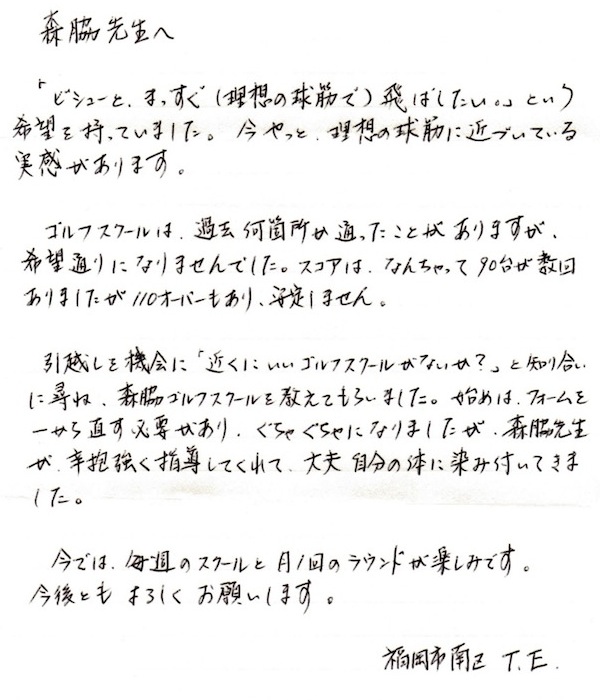 森脇先生へ
「ビシューと、まっすぐ(理想の球筋で)飛ばしたい。」という
希望を持っていました。今やっと、理想の球筋に近づいている
実感があります。
ゴルフスクールは、過去何箇所か通ったことがありますが、
希望通りになりませんでした。スコアは、なんちゃって90台が数回
ありましたが110オーバーもあり、安定しません。
引越しを機会に「近くにいいゴルフスクールがないか?」と知り合い
に尋ね、森脇ゴルフスクールを教えてもらいました。始めは、フォームを
一から直す必要があり、ぐちゃぐちゃになりましたが、森脇先生
が、辛抱強く指導してくれて、大夫自分の体に染み付いてきま
した。
今では、毎週のスクールと月1回のラウンドが楽しみです。
今後ともよろしくお願いします。
福岡市南区 T.E.